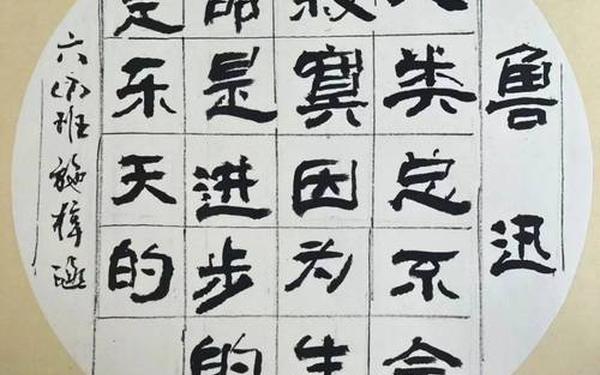 鲁迅
人类总不会
寂寞因为生
命是进步的
是乐天的
六班施梓涵